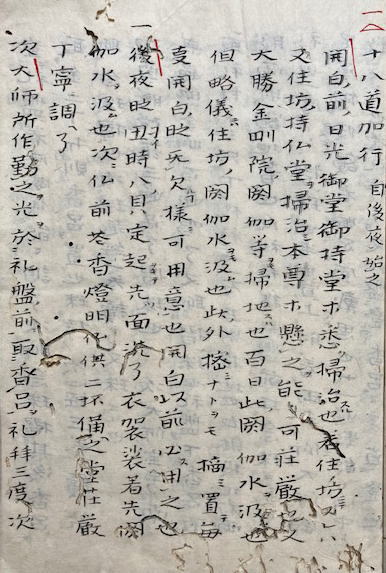 一 十八道加行 自後夜始之
開白前日光御堂御持堂ホ悉ク掃治也若住坊ヌシハ
又住坊ノ持仏堂ヲ掃治シ本尊ホ懸之能々可荘厳也又
大勝金剛院ノ閼伽等掃地也百日此閼伽水ヲ汲也
但略儀住坊ノ閼伽水ヲ汲也此外樒ナトヲモ摘ミ置毎
度開白時无欠様ニ可用意也開白以前必用之也
一 後夜時丑時ハ貝定起先ツ面ヲ洗了衣袈裟着先閼
伽水ヲ汲也次仏前花香燈明佛供二坏備之堂荘厳
丁寧ニ調了
次大師所作勤之光於礼盤前取香呂礼拝三度次